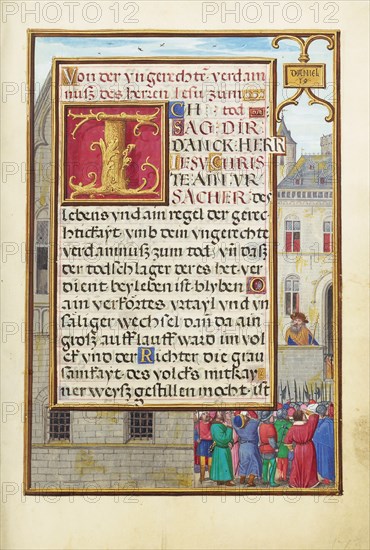 DANIEL
Von der yngerechtē verdam
nusz des herren iesu zum
tod
ICH
SAG DIR
DANCK HERR
IESV CHRIS
TE AIN VR
SACHER des
lebens vnd ain regel der gerec
htickayt vmb dein vngerechte
verdamnusz zum tod vn̄ dasz
der todschlager der es het ver
dient bey leben ist blyben O
ain verkörtes vrtayl vnd vn
säliger wechsel dan̄ da ain
grosz auff lauff ward im vol
ck vnd der Richter die grau
samkayt des volcks mit kay
ner weysz gestillen mocht ist
PHOTO12